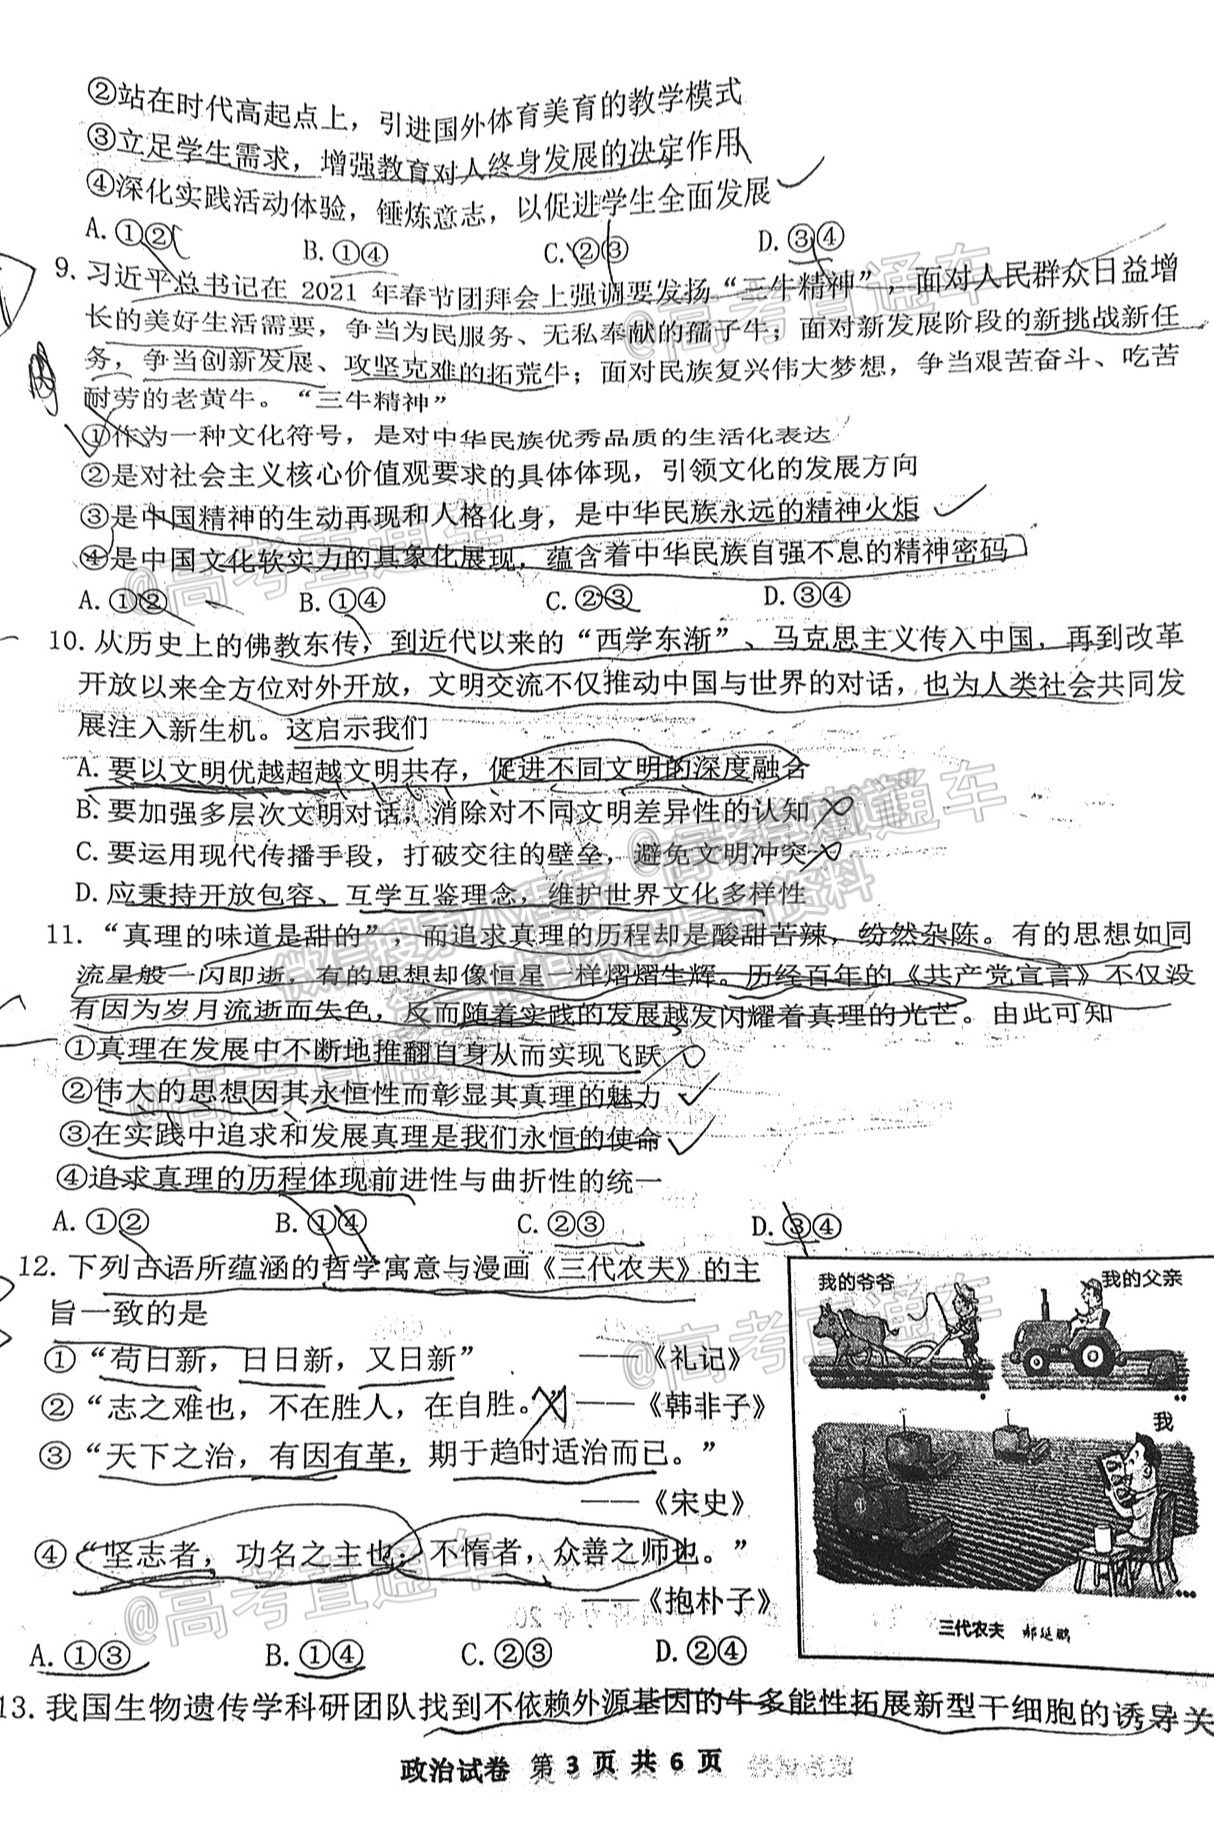 ②站在时代高起点上，引进国外体育美育的教学模式
③立足学生需求，增强教育对人终身发展的决定作用
④深化实践活动体验，锤炼意志，以促进学生全面发展
A.①② B.①④ C.②③ D.③④
9.习近平总书记在 2021 年春节团拜会上强调要发扬“三牛精神”，面对人民群众日益增
长的美好生活需要，争当为民服务、无私奉献的孺子牛；面对新发展阶段的新挑战新任
务，争当创新发展、攻坚克难的拓荒牛；面对民族复兴伟大梦想，争当艰苦奋斗、吃苦
耐劳的老黄牛。“三牛精神”
①作为一种文化符号，是对中华民族优秀品质的生活化表达
②是对社会主义核心价值观要求的具体体现，引领文化的发展方向
③是中国精神的生动再现和人格化身，是中华民族永远的精神火炬
④是中国文化软实力的具象化展现，蕴含着中华民族自强不息的精神密码
A.①② B.①④ C.②③ D.③④
10.从历史上的佛教东传，到近代以来的“西学东渐”、马克思主义传入中国，再到改革
开放以来全方位对外开放，文明交流不仅推动中国与世界的对话，也为人类社会共同发
展注入新生机。这启示我们
A.要以文明优越超越文明共存，促进不同文明的深度融合
B.要加强多层次文明对话，消除对不同文明差异性的认知
C.要运用现代传播手段，打破交往的壁垒，避免文明冲突
D.应秉持开放包容、互学互鉴理念，维护世界文化多样性
11.“真理的味道是甜的”，而追求真理的历程却是酸甜苦辣，纷然杂陈。有的思想如同
流星般一闪即逝，有的思想却像恒星一样熠熠生辉。历经百年的《共产党宣言》不仅没
有因为岁月流逝而失色，反而随着实践的发展越发闪耀着真理的光芒。由此可知
①真理在发展中不断地推翻自身从而实现飞跃
②伟大的思想因其永恒性而彰显其真理的魅力
③在实践中追求和发展真理是我们永恒的使命
④追求真理的历程体现前进性与曲折性的统一
A.①② B.①④ C.②③ D.③④
12.下列古语所蕴涵的哲学寓意与漫画《三代农夫》的主
旨一致的是
①“苟日新，日日新，又日新” ——《礼记》
②“志之难也，不在胜人，在自胜。” ——《韩非子》
③“天下之治，有因有革，期于趋时适治而已。”
——《宋史》
④“坚志者，功名之主也；不惰者，众善之师也。”
——《抱朴子》
A.①③ B.①④ C.②③ D.②④
我的爷爷
我的父亲
我
三代农夫 郝延鹏
13.我国生物遗传学科研团队找到不依赖外源基因的牛多能性拓展新型干细胞的诱导关
政治试卷 第 3 页 共 6 页
@高考直通车
@高考直通车
@高考直通车
@高考直通车
@高考直通车
@高考直通车
@高考直通车
微信搜索小程序